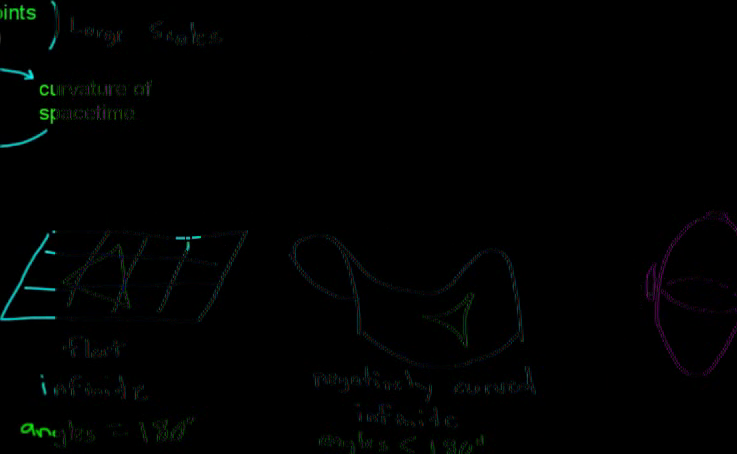 oints
Large Scales
curvature of
spacetime
flat
infinite
angles = 180°
negatively curved
infinite
angles < 180°